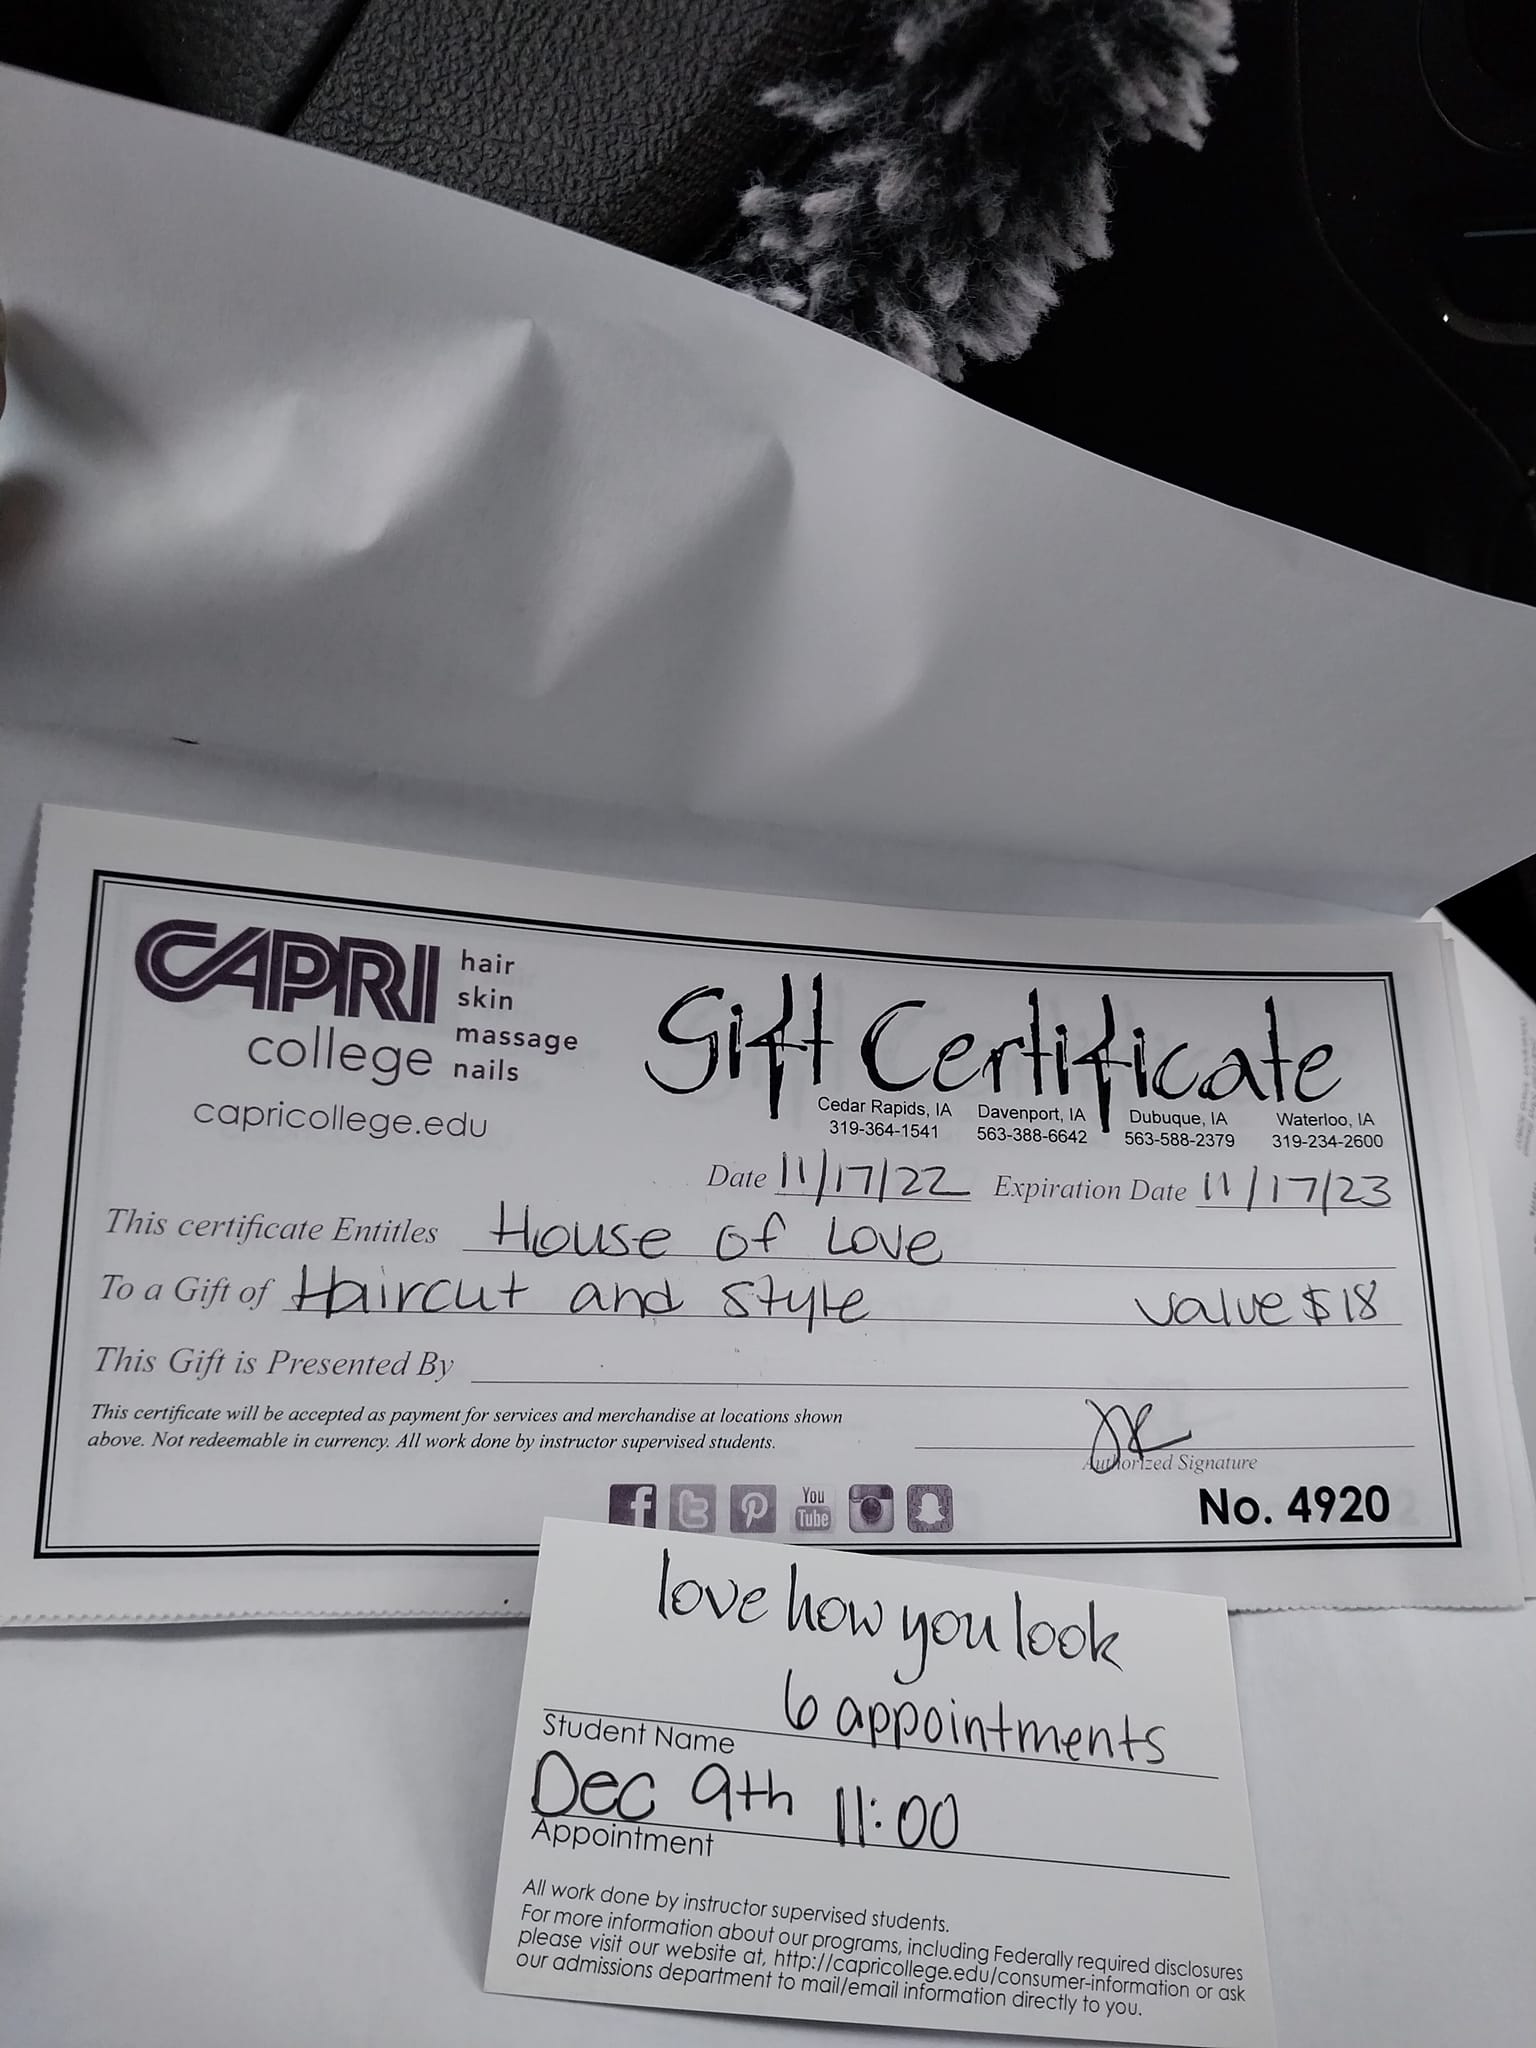 CAPRI
college
hair
skin
massage
nails
capricollege.edu
Gift Certificate
Cedar Rapids, IA
319-364-1541
Davenport, IA
563-388-6642
Dubuque, IA
563-588-2379
Waterloo, IA
319-234-2600
Date 11/17/22 Expiration Date 11/17/23
This certificate Entitles House of Love
To a Gift of Haircut and style value $18
This Gift is Presented By
This certificate will be accepted as payment for services and merchandise at locations shown
above. Not redeemable in currency. All work done by instructor supervised students.
Authorized Signature
You
Tube
No. 4920
love how you look
6 appointments
Student Name
Dec 9th 11:00
Appointment
All work done by instructor supervised students.
For more information about our programs, including Federally required disclosures
please visit our website at, http://capricollege.edu/consumer-information or ask
our admissions department to mail/email information directly to you.